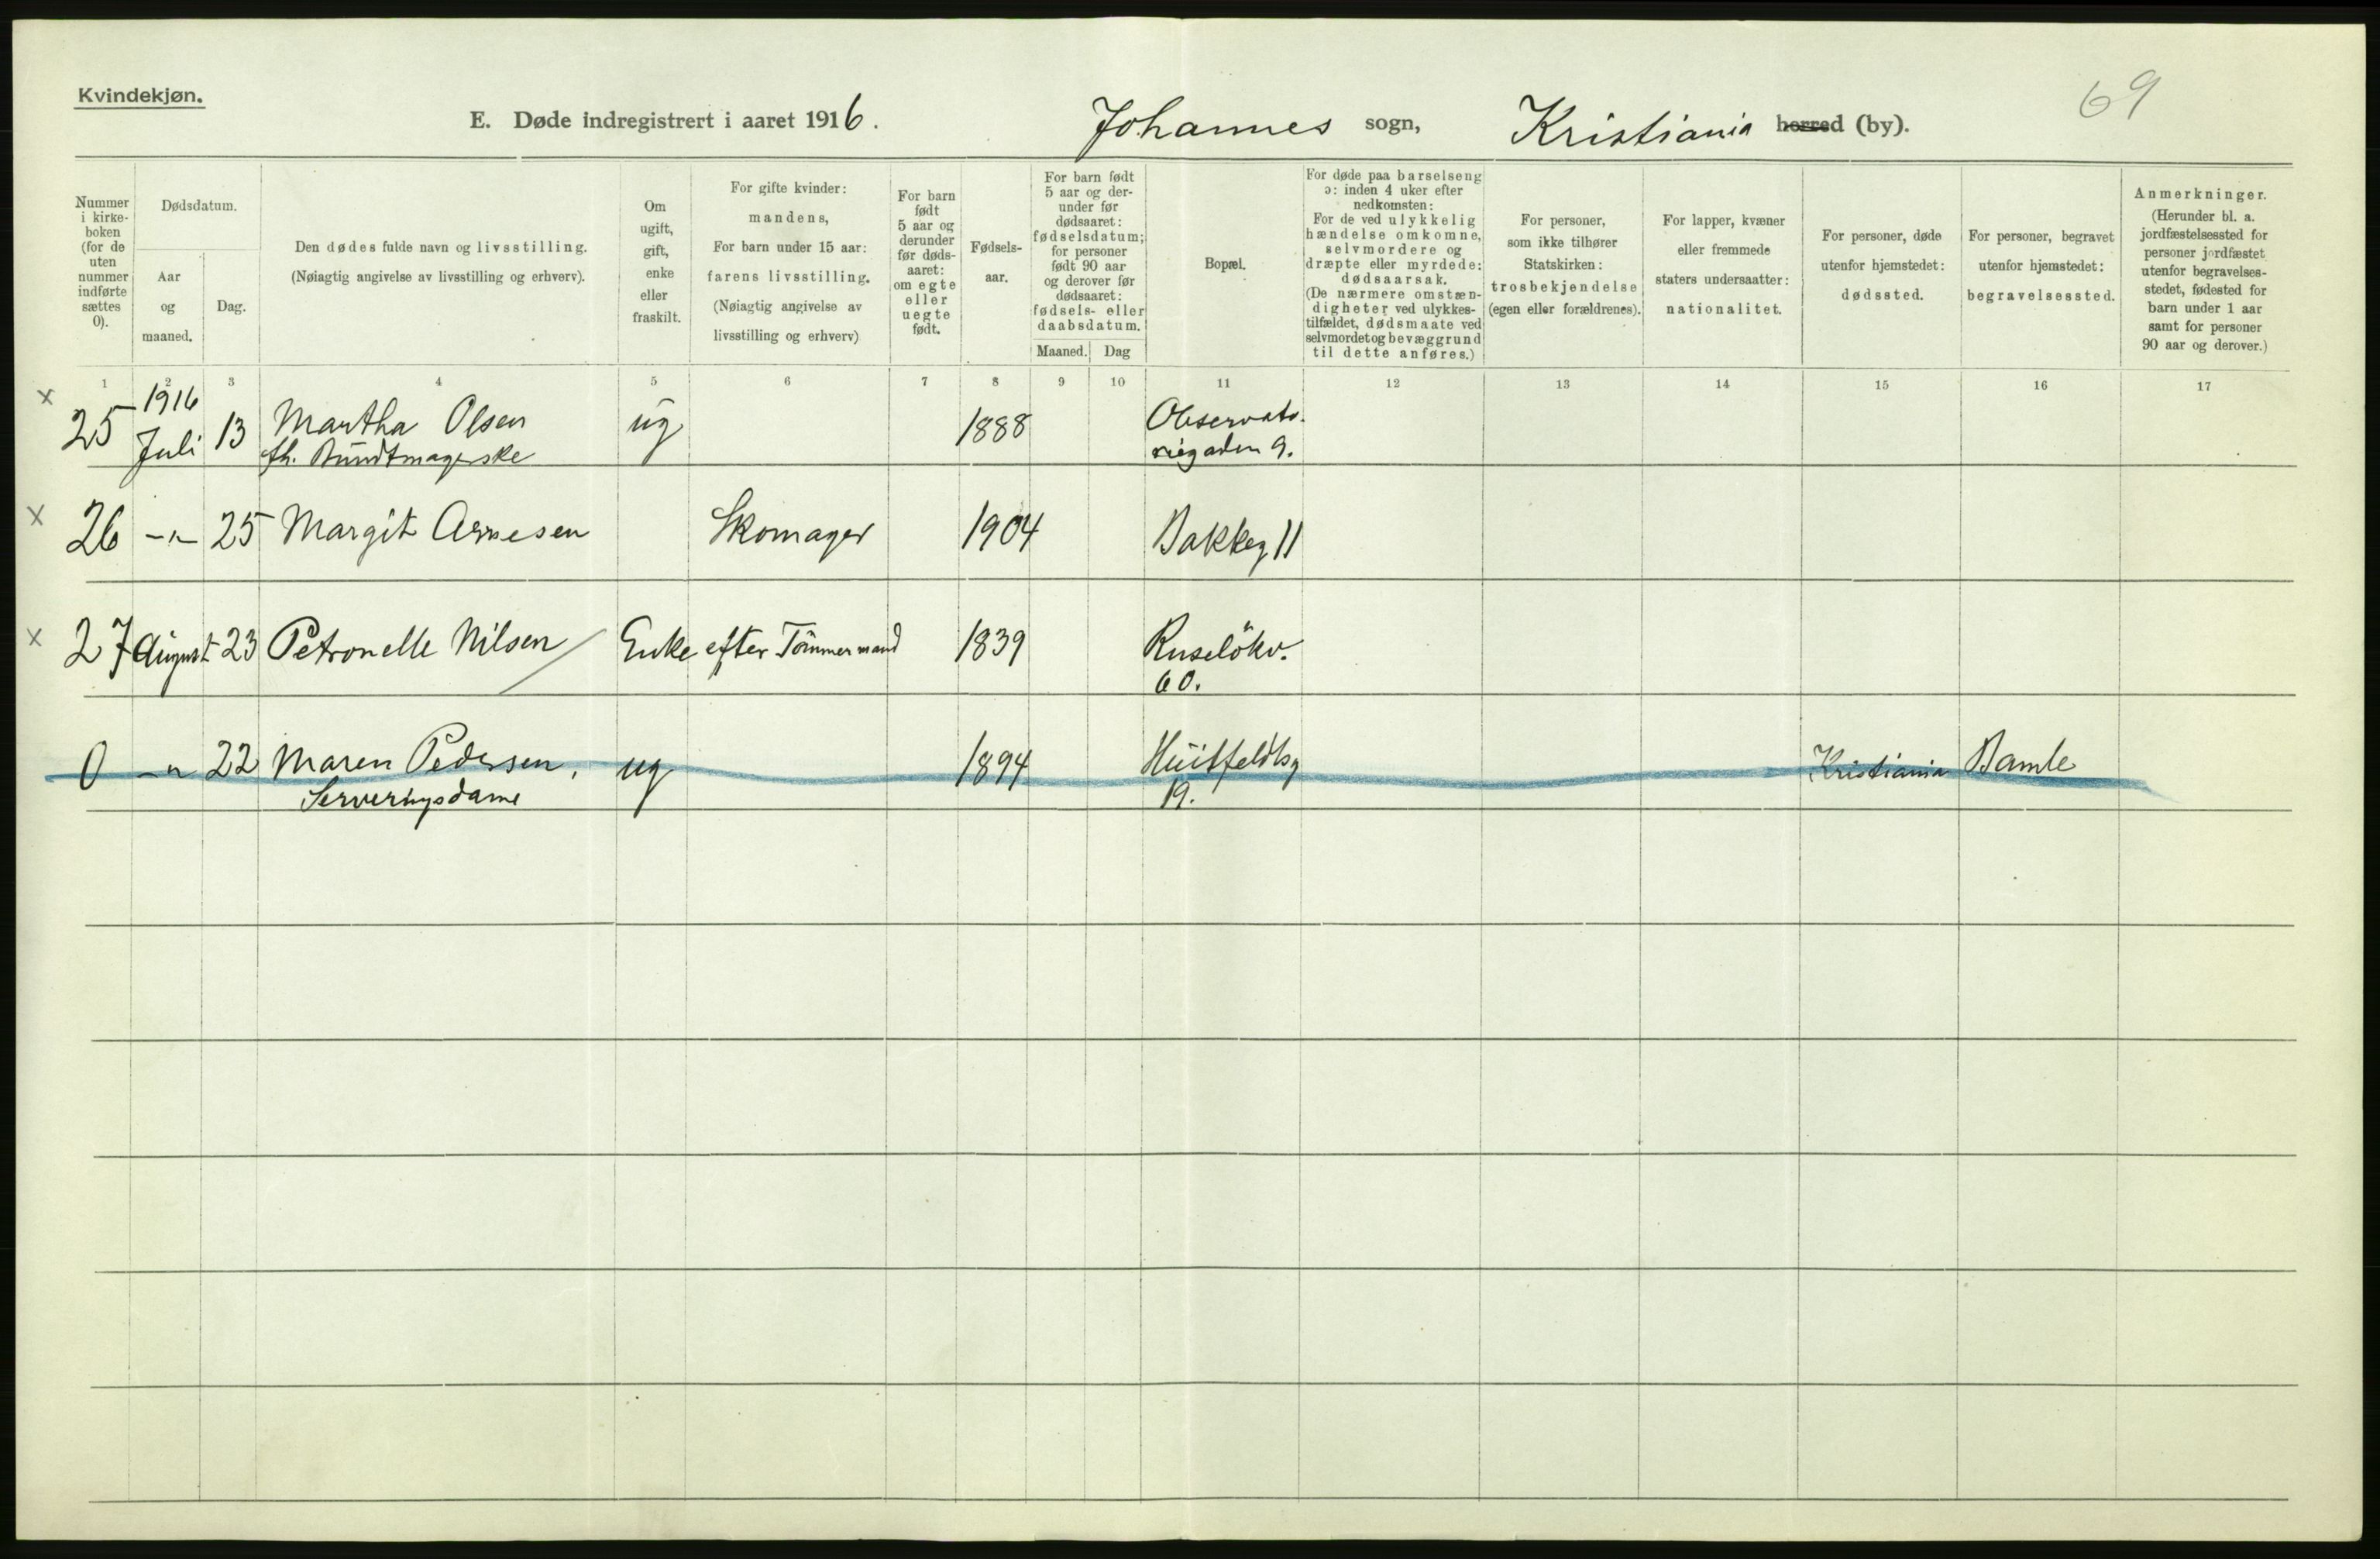 Kvindekjøn.
69
E. Døde indregistrert i aaret 1916.
Johannes sogn, Kristiania herred (by).
Nummer i kirke-
boken
(for de
uten
nummer
indførte
sættes
0).
Dødsdatum.
Aar
og
maaned.
Dag.
Den dødes fulde navn og livsstilling.
(Nøiagtig angivelse av livsstilling og erhverv).
Om
ugift,
gift,
enke
eller
fraskilt.
For gifte kvinder:
mandens,
For barn under 15 aar:
farens livsstilling.
(Nøiagtig angivelse av
livsstilling og erhverv)
For barn
født
5 aar og
derunder
før døds-
aaret:
om egte
eller
uegte
født.
Fødsels-
aar.
For barn født
5 aar og der-
under før
dødsaaret:
fødselsdatum;
for personer
født 90 aar
og derover før
dødsaaret:
fødsels- eller
daabsdatum.
Maaned. Dag
Bopæl.
For døde paa barselseng
ɔ: inden 4 uker efter
nedkomsten:
For de ved ulykkelig
hændelse omkomne,
selvmordere og
dræpte eller myrdede:
dødsaarsak.
(De nærmere omstæn-
digheter ved ulykkes-
tilfældet, dødsmaate ved
selvmordet og bevæggrund
til dette anføres.)
For personer,
som ikke tilhører
Statskirken:
trosbekjendelse
(egen eller forældrenes).
For lapper, kvæner
eller fremmede
staters undersaatter:
nationalitet.
For personer, døde
utenfor hjemstedet:
dødssted.
For personer, begravet
utenfor hjemstedet:
begravelsessted.
Anmerkninger.
(Herunder bl. a.
jordfæstelsessted for
personer jordfæstet
utenfor begravelses-
stedet, fødested for
barn under 1 aar
samt for personer
90 aar og derover.)
1 2 3 4 5 6 7 8 9 10 11 12 13 14 15 16 17
x 25 1916 Juli 13 Martha Olsen ug 1888 Observato-
fh. Bundtmagerske riegaden 9.
x 26 -"- 25 Margit Arnesen Skomager 1904 Bakkeg 11
x 27 August 23 Petronelle Nilsen Enke efter Tömmermand 1839 Ruselökv.
60.
0 -"- 22 Maren Pedersen, ug 1894 Huitfeldtsg Kristiania Bamle
Serveringsdame 19.